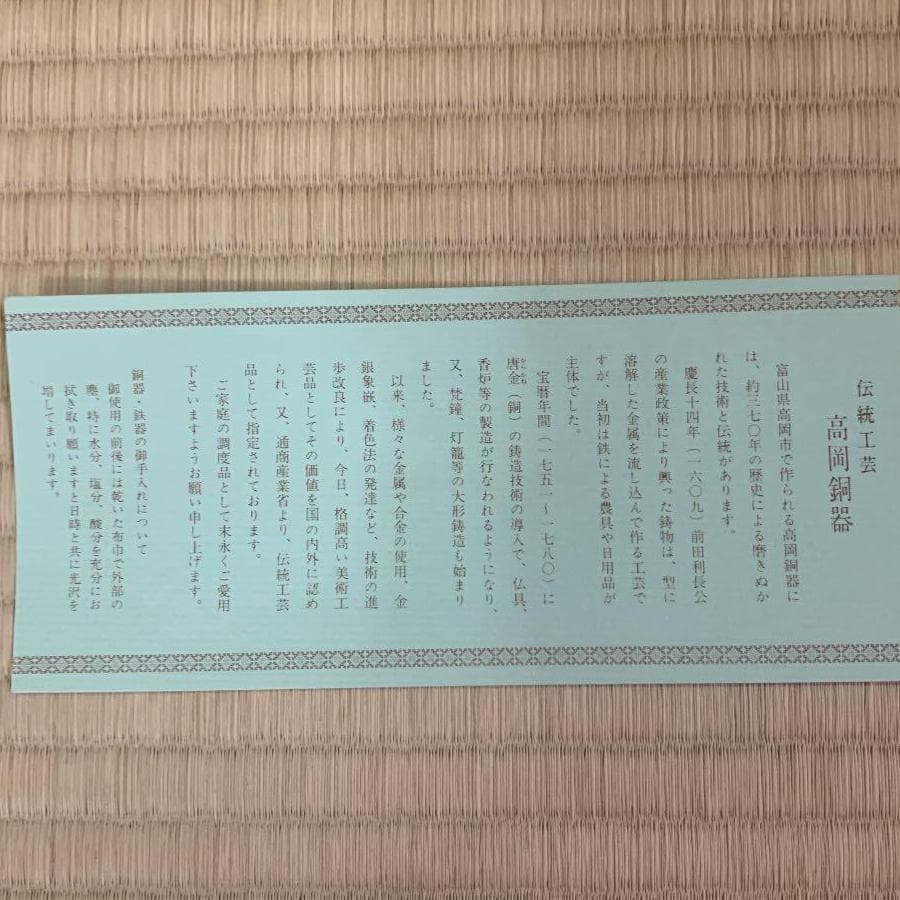 伝統工芸
高岡銅器
富山県高岡市で作られる高岡銅器に
は、約三七〇年の歴史による磨きぬか
れた技術と伝統があります。
慶長十四年(一六〇九)前田利長公
の産業政策により興った鋳物は、型に
溶解した金属を流し込んで作る工芸で
すが、当初は鉄による農具や日用品が
主体でした。
宝暦年間(一七五一〜一七八〇)に
唐金(銅)の鋳造技術の導入で、仏具、
香炉等の製造が行なわれるようになり、
又、梵鐘、灯籠等の大形鋳造も始まり
ました。
以来、様々な金属や合金の使用、金
銀象嵌、着色法の発達など、技術の進
歩改良により、今日、格調高い美術工
芸品としてその価値を国の内外に認め
られ、又、通商産業省より、伝統工芸
品として指定されております。
ご家庭の調度品として末永くご愛用
下さいますようお願い申し上げます。
銅器・鉄器の御手入れについて
御使用の前後には乾いた布巾で外部の
塵、特に水分、塩分、酸分を充分にお
拭き取り願いますと日時と共に光沢を
増してまいります。